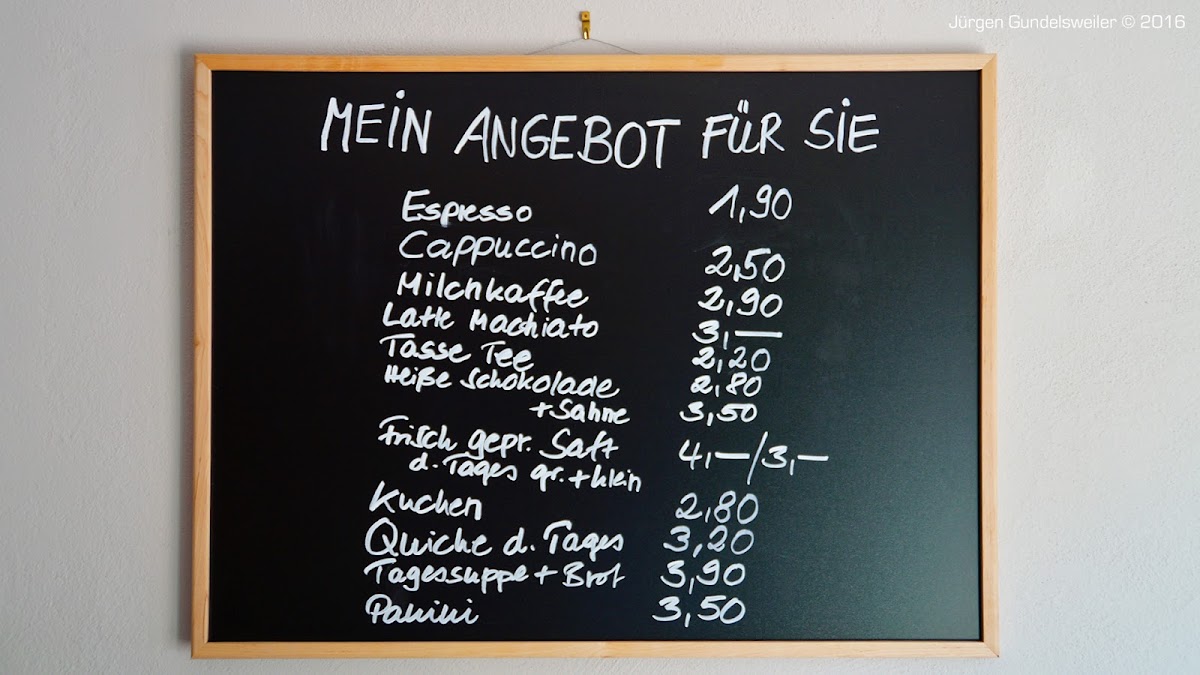 Jürgen Gundelsweiler © 2016
MEIN ANGEBOT FÜR SIE
Espresso 1,90
Cappuccino 2,50
Milchkaffee 2,90
Latte Machiato 3,—
Tasse Tee 2,20
Heiße Schokolade 2,80
+ Sahne 3,50
Frisch gepr. Saft
d. Tages gr. + klein 4,—/3,—
Kuchen 2,80
Quiche d. Tages 3,20
Tagessuppe + Brot 3,90
Panini 3,50